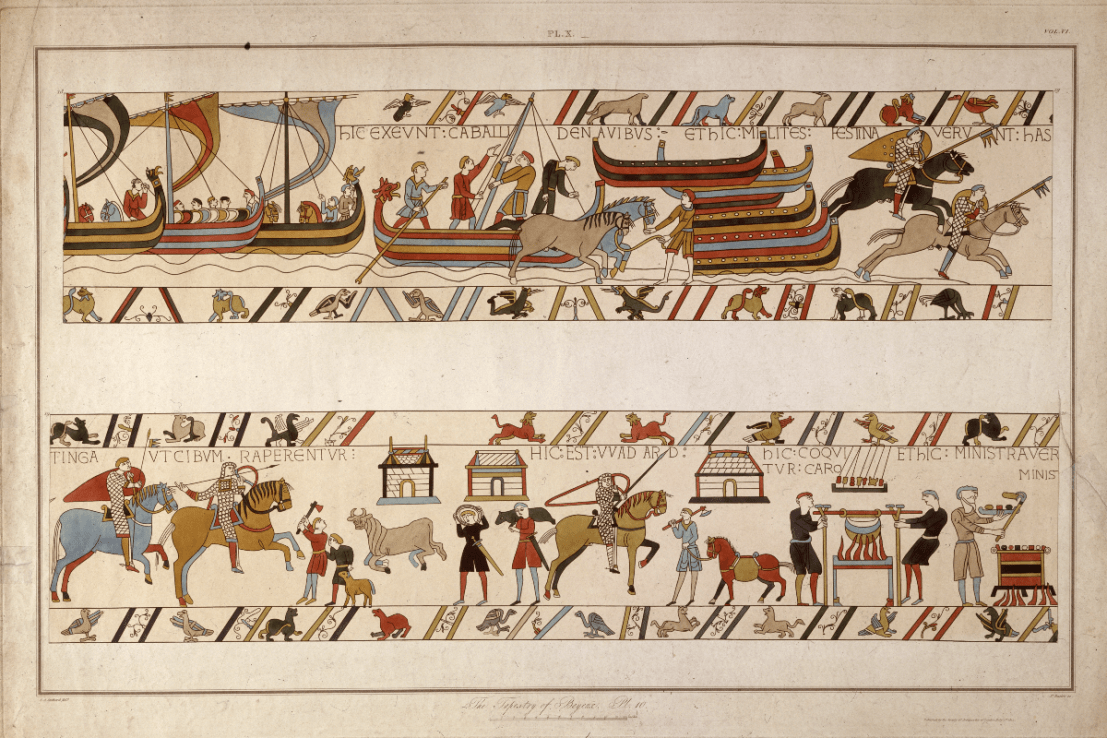 PL.X.
VOL.VI.
HIC EXEVNT: CABALLI DENAVIBUS:- ET HIC: MILITES: FESTINAVERVNT: HAS
TINGA VT CIBVM · RAPERENTVR:
HIC: EST: VVADARD: HIC: COQV
TVR: CARO
ET HIC: MINISTRAVER
MINIS
The Tapestry of Bayeux. Pl. 10.